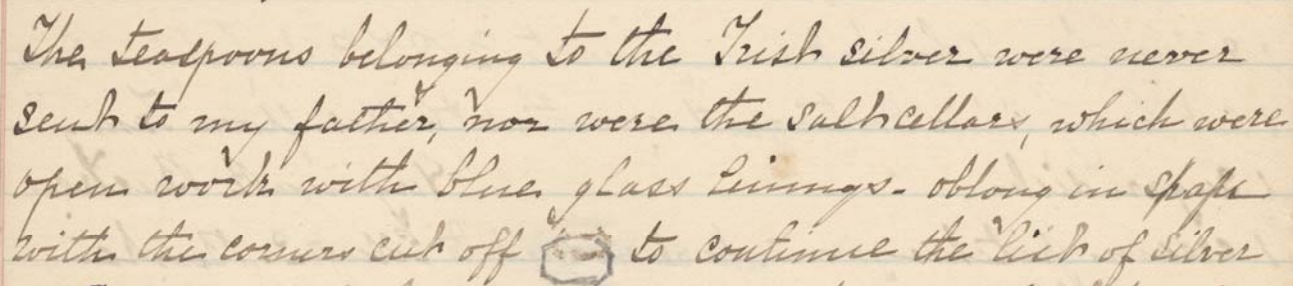 The teaspoons belonging to the Irish silver were never
sent to my father, nor were the saltcellars, which were
open work with blue glass linings - oblong in shape
with the corners cut off to continue the list of silver